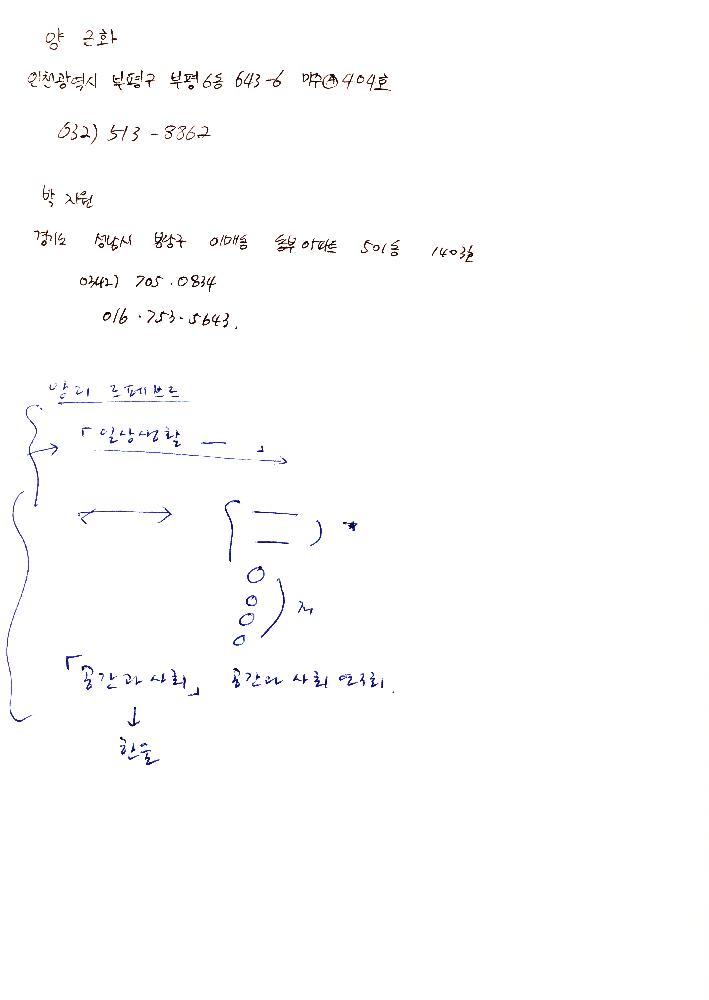 양 근화
인천광역시 부평구 부평6동 643-6 미주Ⓐ 404호
032) 513-8862
박 지원
경기도 성남시 분당구 이매동 동부아파트 501동 1403호
0342) 705.0834
016.753.5643.
앙리 르페브르
「일상생활 — 」
저
「공간과 사회」 공간과 사회 연구회.
한울